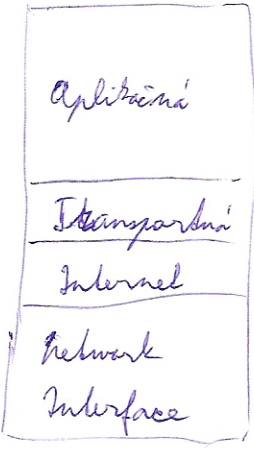 Aplikačná
Transportná
Internet
Network
Interface